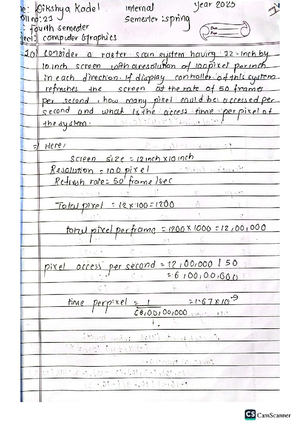 e: Dikshya Kadel Internal Year 2025
ll no: 23 Semester: spring
: fourth semester
ject: computer Graphics
1a) Consider a raster scan system having 12-inch by
10 inch screen with a resolution of 100 pixel per inch
in each direction. If display controller of this system
refreshes the screen at the rate of 50 frames
per second, how many pixel could be accessed per
second and what is the access time per pixel of
the system.
=) Here,
screen size = 12 inch x 10 inch
Resolution = 100 pixel
Refresh rate = 50 frame/sec
Total pixel = 12 x 100 = 1200
total pixel per frame = 1200 x 1000 = 12,00,000
pixel access per second = 12,00,000 | 50
= 6,00,00,000
time per pixel = 1 = 1.67 x 10⁻⁸
6,00,00,000
CS CamScanner